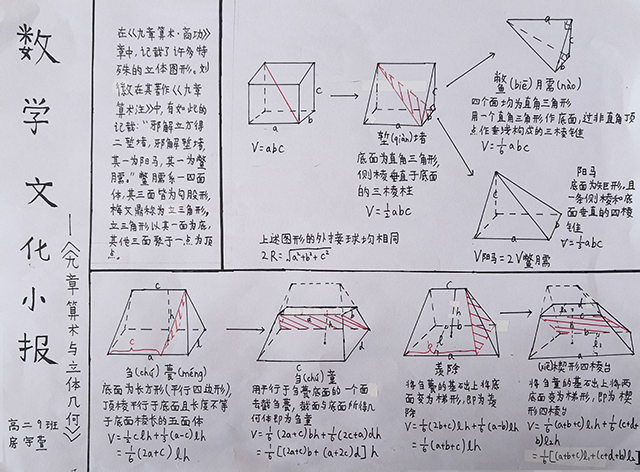 数学文化小报
——《九章算术与立体几何》
高二9班
在《九章算术·商功》
章中，记载了许多特
殊的立体图形。刘
徽在其著作《九章
算术注》中，有如此的
记载：“邪解立方得
二堑堵，邪解堑堵，
其一为阳马，其一为鳖
臑。”鳖臑系一四面
体，其三面皆为勾股形，
梅文鼎称为立三角形。
立三角形以其一面为底，
其他三面聚于一点为顶
点。
a
b
c
V=abc
堑(qiàn)堵
底面为直角三角形，
侧棱垂直于底面
的三棱柱
V=½abc
上述图形的外接球均相同
2R=√a²+b²+c²
鳖(biē)臑(nào)
四个面均为直角三角形
用一个直角三角形作底面，过非直角顶
点作垂线构成的三棱锥
V=⅙abc
阳马
底面为矩形，且
一条侧棱和底
面垂直的四棱
锥
V=⅓abc
V阳马=2V鳖臑
刍(chú)甍(méng)
底面为长方形(平行四边形)，
顶棱平行于底面且长度不等
于底面棱长的五面体
V=½clh+⅓(a-c)lh
=⅙(2a+c)lh
刍(chú)童
用平行于刍甍底面的一个面
去截刍甍，截面与底面所得几
何体即为刍童
V=⅙(2a+c)bh+⅙(2c+a)dh
=⅙[(2a+c)b+(a+2c)d]h
羡除
将刍甍的基础上将底
面变为梯形，即为羡
除
V=⅙(2b+c)lh+⅙(a-b)lh
=⅙(a+b+c)lh
楔形四棱台
将刍童的基础上将两
底面变为梯形，即为楔
形四棱台